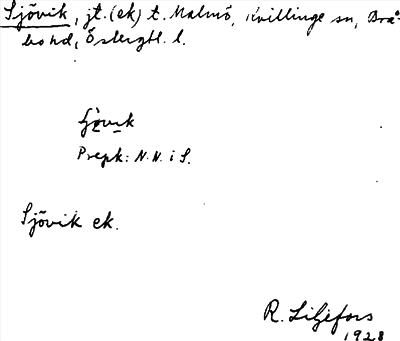 Sjövik, jt. (ek) t. Malmö, Kvillinge sn, Brå-
bo hd, Östergtl. l.
Prepk: N.N. i S.
Sjövik ek.
R. Liljefors
1928